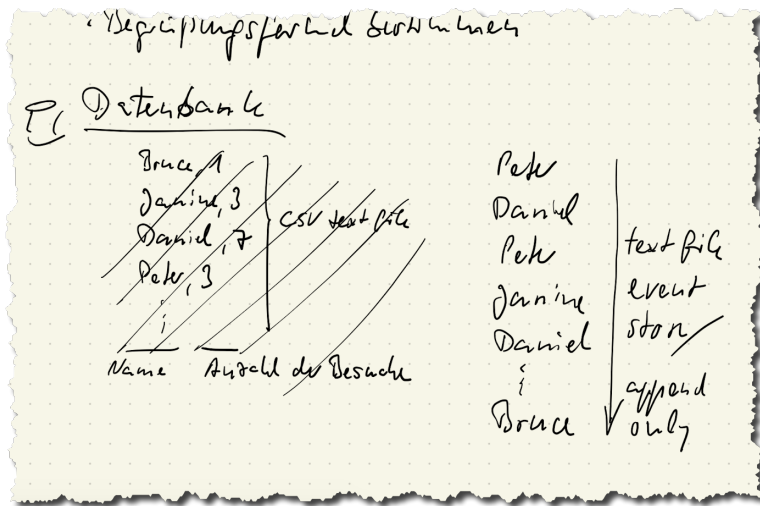 · Begrüßungsformel bestimmen
Datenbank
Bruce, 1
Janine, 3
Daniel, 7
Peter, 3
⋮
CSV text file
Name
Anzahl der Besuche
Peter
Daniel
Peter
Janine
Daniel
⋮
Bruce
text file
event
store
append
only